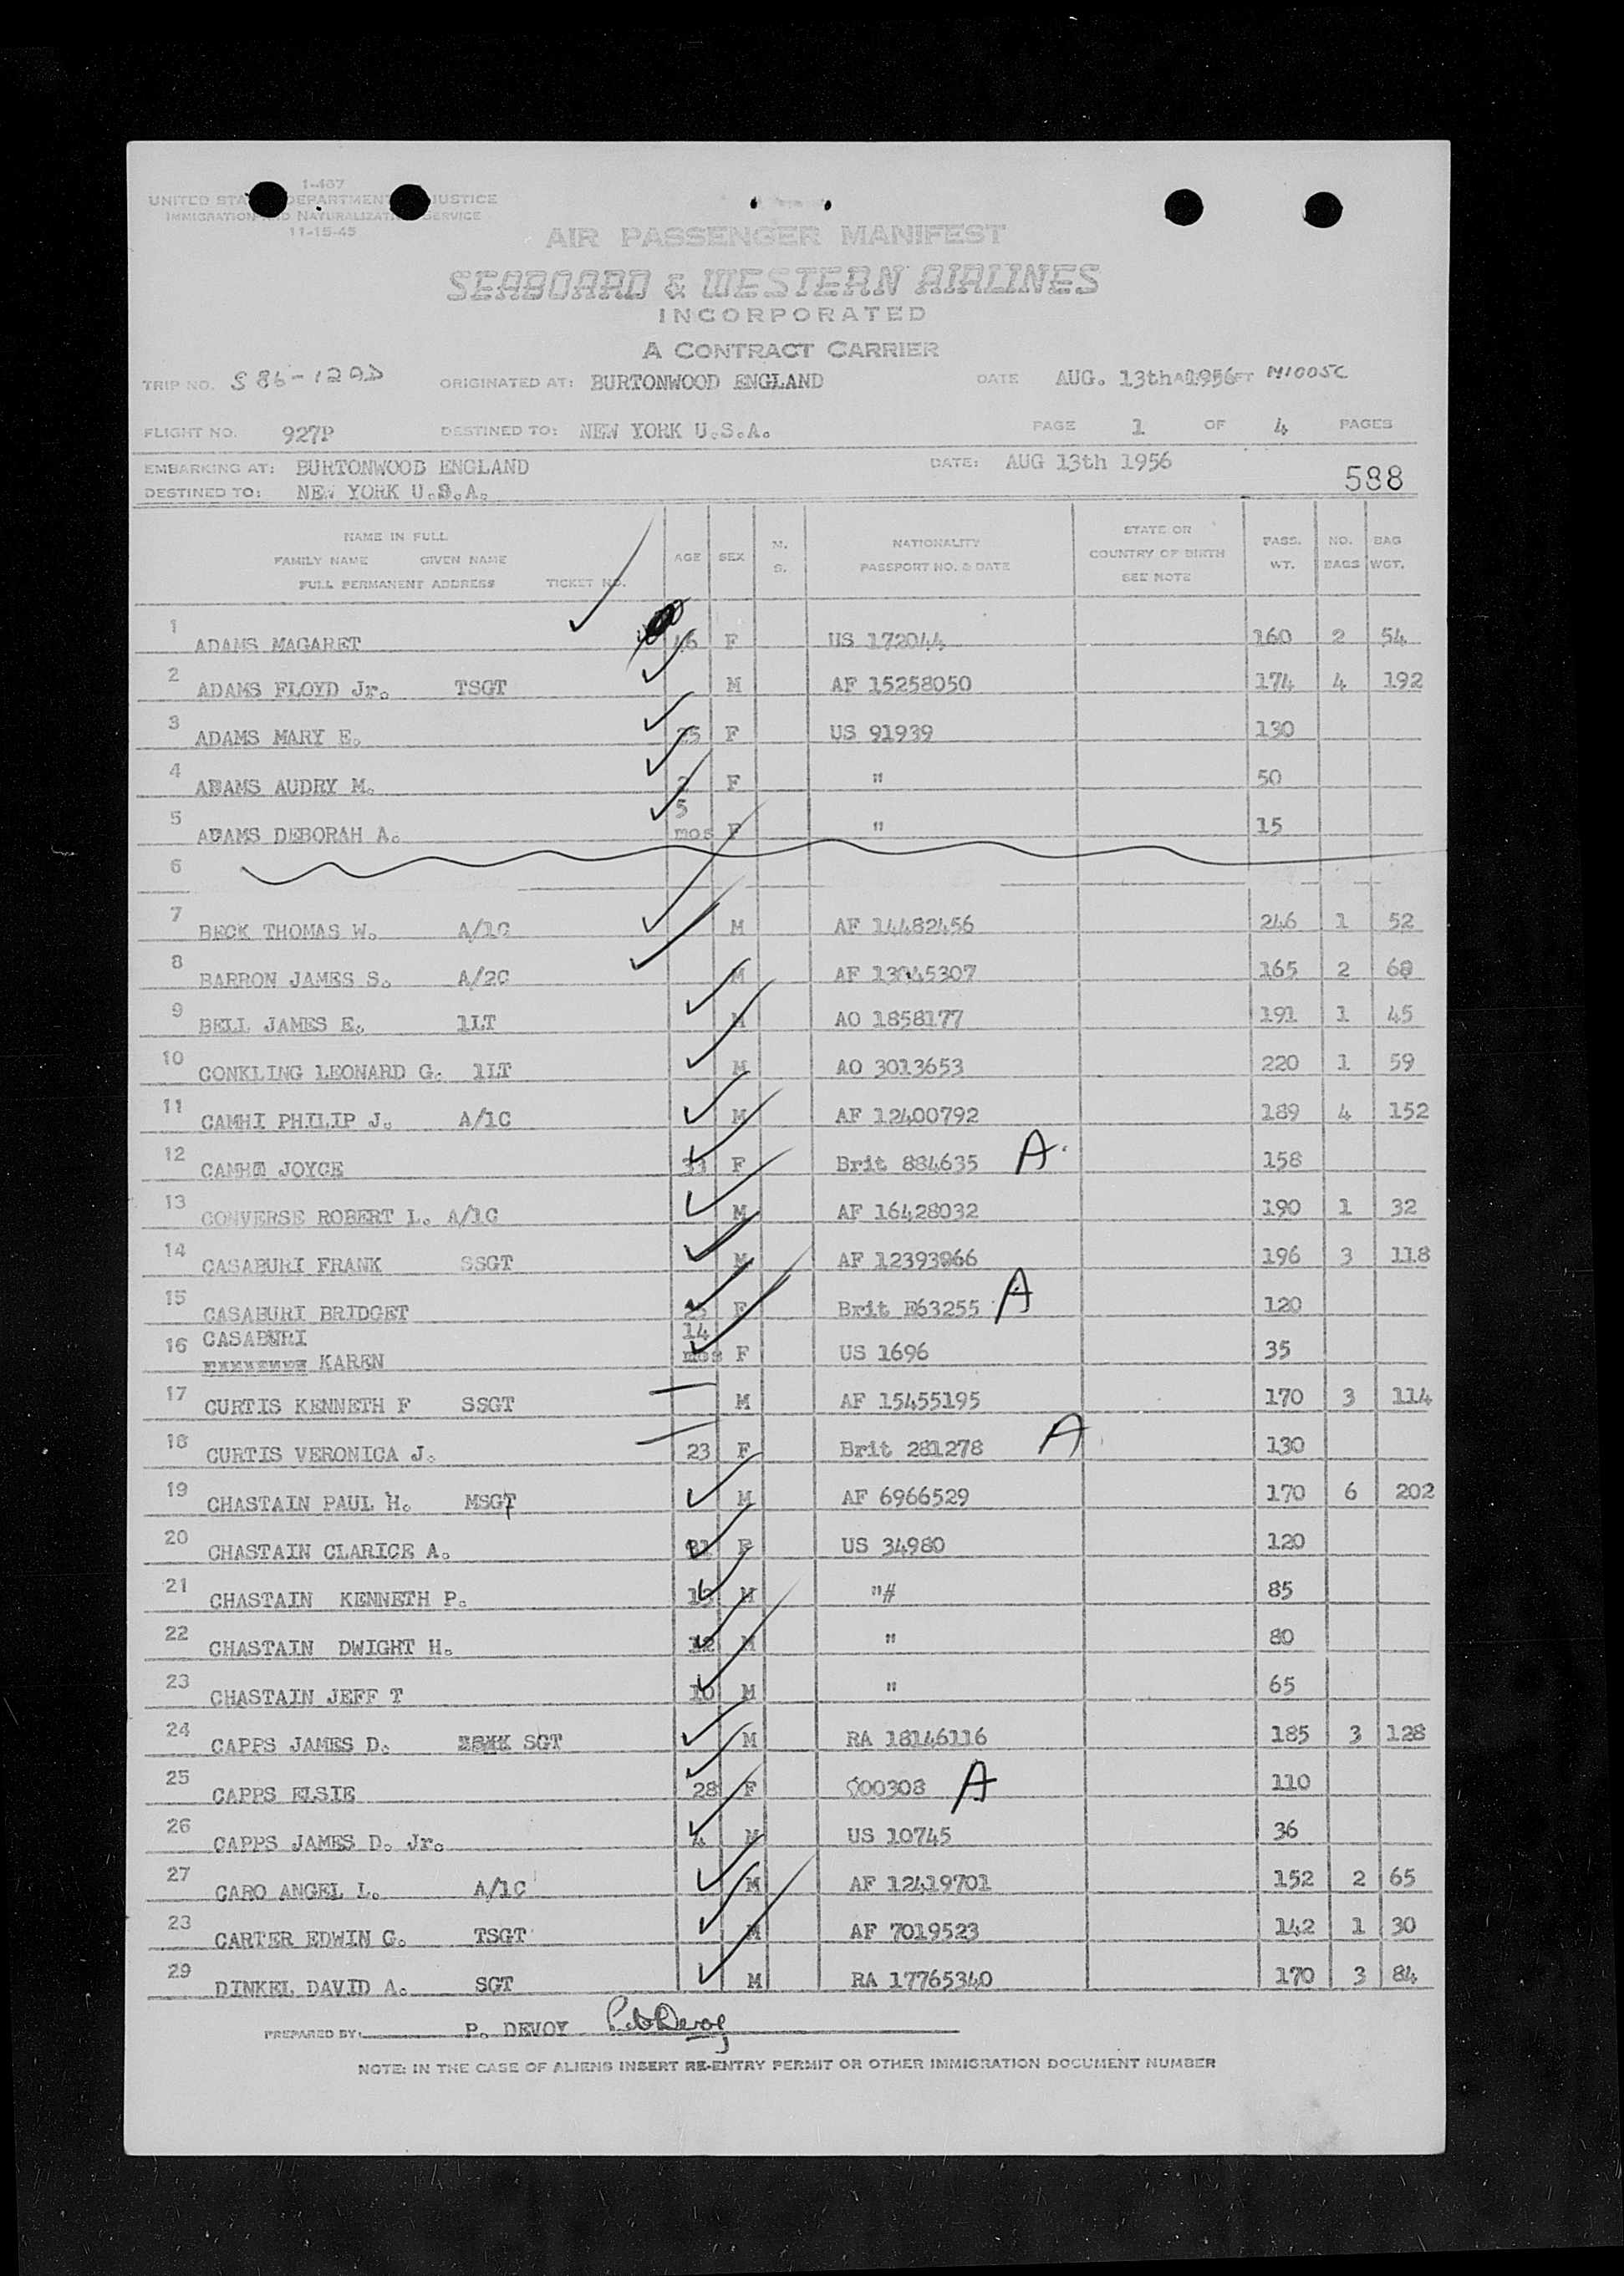 1-467
UNITED STA DEPARTMENT JUSTICE
IMMIGRATION AND NATURALIZATI SERVICE
11-15-45
AIR PASSENGER MANIFEST
SEABOARD & WESTERN AIRLINES
INCORPORATED
A CONTRACT CARRIER
TRIP NO. S 86-12 ORIGINATED AT: BURTONWOOD ENGLAND DATE AUG. 13th 1956 N1005C
FLIGHT NO. 927P DESTINED TO: NEW YORK U.S.A. PAGE 1 OF 4 PAGES
EMBARKING AT: BURTONWOOD ENGLAND DATE: AUG 13th 1956
DESTINED TO: NEW YORK U.S.A. 588
NAME IN FULL
FAMILY NAME GIVEN NAME
FULL PERMANENT ADDRESS TICKET NO. AGE SEX M. S. NATIONALITY PASSPORT NO. & DATE STATE OR COUNTRY OF BIRTH SEE NOTE PASS. WT. NO. BAGS BAG WGT.
1 ADAMS MAGARET 46 F US 172044 160 2 54
2 ADAMS FLOYD Jr. TSGT M AF 15258050 174 4 192
3 ADAMS MARY E. 25 F US 91939 130
4 ADAMS AUDRY M. 2 F " 50
5 ADAMS DEBORAH A. 5 mos F " 15
6
7 BECK THOMAS W. A/1C M AF 14482456 246 1 52
8 BARRON JAMES S. A/2C M AF 13045307 165 2 60
9 BELL JAMES E. 1LT M AO 1858177 191 1 45
10 CONKLING LEONARD G. 1LT M AO 3013653 220 1 59
11 CAMHI PHILIP J. A/1C M AF 12400792 189 4 152
12 CAMHI JOYCE F Brit 884635 A 158
13 CONVERSE ROBERT L. A/1C M AF 16428032 190 1 32
14 CASABURI FRANK SSGT M AF 12393966 196 3 118
15 CASABURI BRIDGET F Brit E63255 A 120
16 CASABURI
KAREN 14 mos F US 1696 35
17 CURTIS KENNETH F SSGT M AF 15455195 170 3 114
18 CURTIS VERONICA J. 23 F Brit 281278 A 130
19 CHASTAIN PAUL H. MSGT M AF 6966529 170 6 202
20 CHASTAIN CLARICE A. F US 34980 120
21 CHASTAIN KENNETH P. M " 85
22 CHASTAIN DWIGHT H. 12 M " 80
23 CHASTAIN JEFF T 10 M " 65
24 CAPPS JAMES D. SGT M RA 18146116 185 3 128
25 CAPPS ELSIE 28 F C00308 A 110
26 CAPPS JAMES D. Jr. 4 M US 10745 36
27 CARO ANGEL L. A/1C M AF 12419701 152 2 65
28 CARTER EDWIN G. TSGT M AF 7019523 142 1 30
29 DINKEL DAVID A. SGT M RA 17765340 170 3 84
PREPARED BY: P. DEVOY P. Devoy
NOTE: IN THE CASE OF ALIENS INSERT RE-ENTRY PERMIT OR OTHER IMMIGRATION DOCUMENT NUMBER